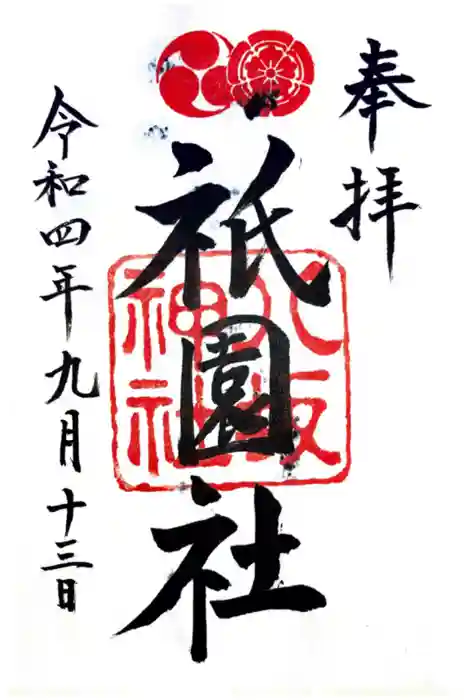 奉拝
祇園社
八坂
神社
令和四年九月十三日